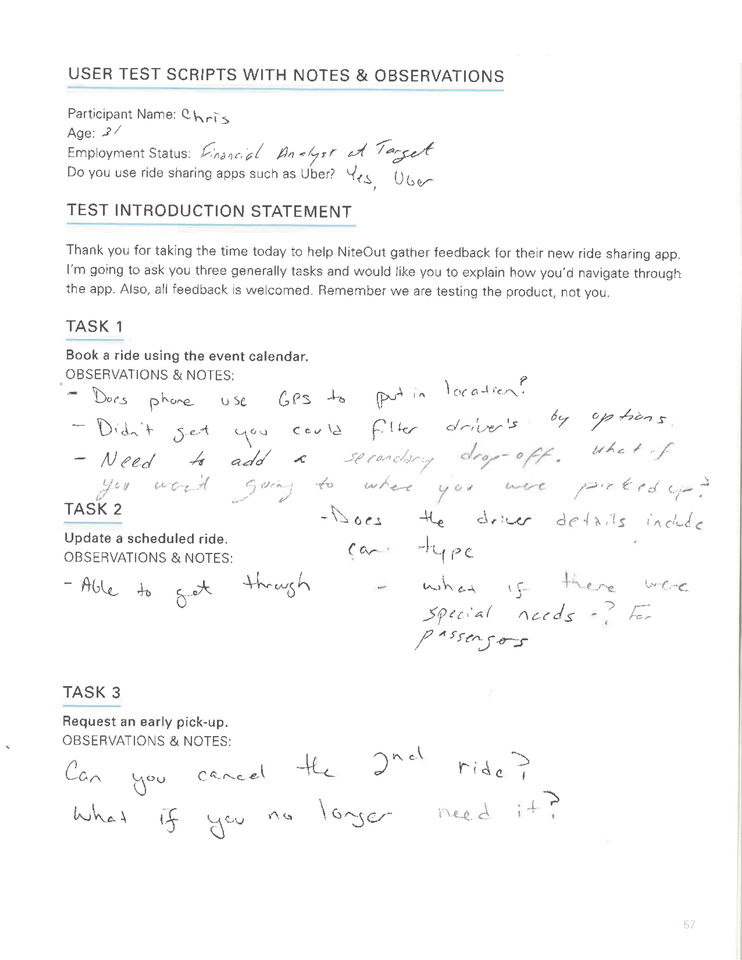 USER TEST SCRIPTS WITH NOTES & OBSERVATIONS
Participant Name: Chris
Age: 31
Employment Status: Financial Analyst at Target
Do you use ride sharing apps such as Uber? Yes, Uber
TEST INTRODUCTION STATEMENT
Thank you for taking the time today to help NiteOut gather feedback for their new ride sharing app.
I'm going to ask you three generally tasks and would like you to explain how you'd navigate through
the app. Also, all feedback is welcomed. Remember we are testing the product, not you.
TASK 1
Book a ride using the event calendar.
OBSERVATIONS & NOTES:
- Does phone use GPS to put in location?
- Didn't get you could filter driver's by options.
- Need to add a secondary drop-off. What if
you won't going to where you were picked up?
TASK 2
Update a scheduled ride.
OBSERVATIONS & NOTES:
- Able to get through
- Does the driver details include
car type
- what if there were
special needs -? For
passengers
TASK 3
Request an early pick-up.
OBSERVATIONS & NOTES:
Can you cancel the 2nd ride?
What if you no longer need it?
57